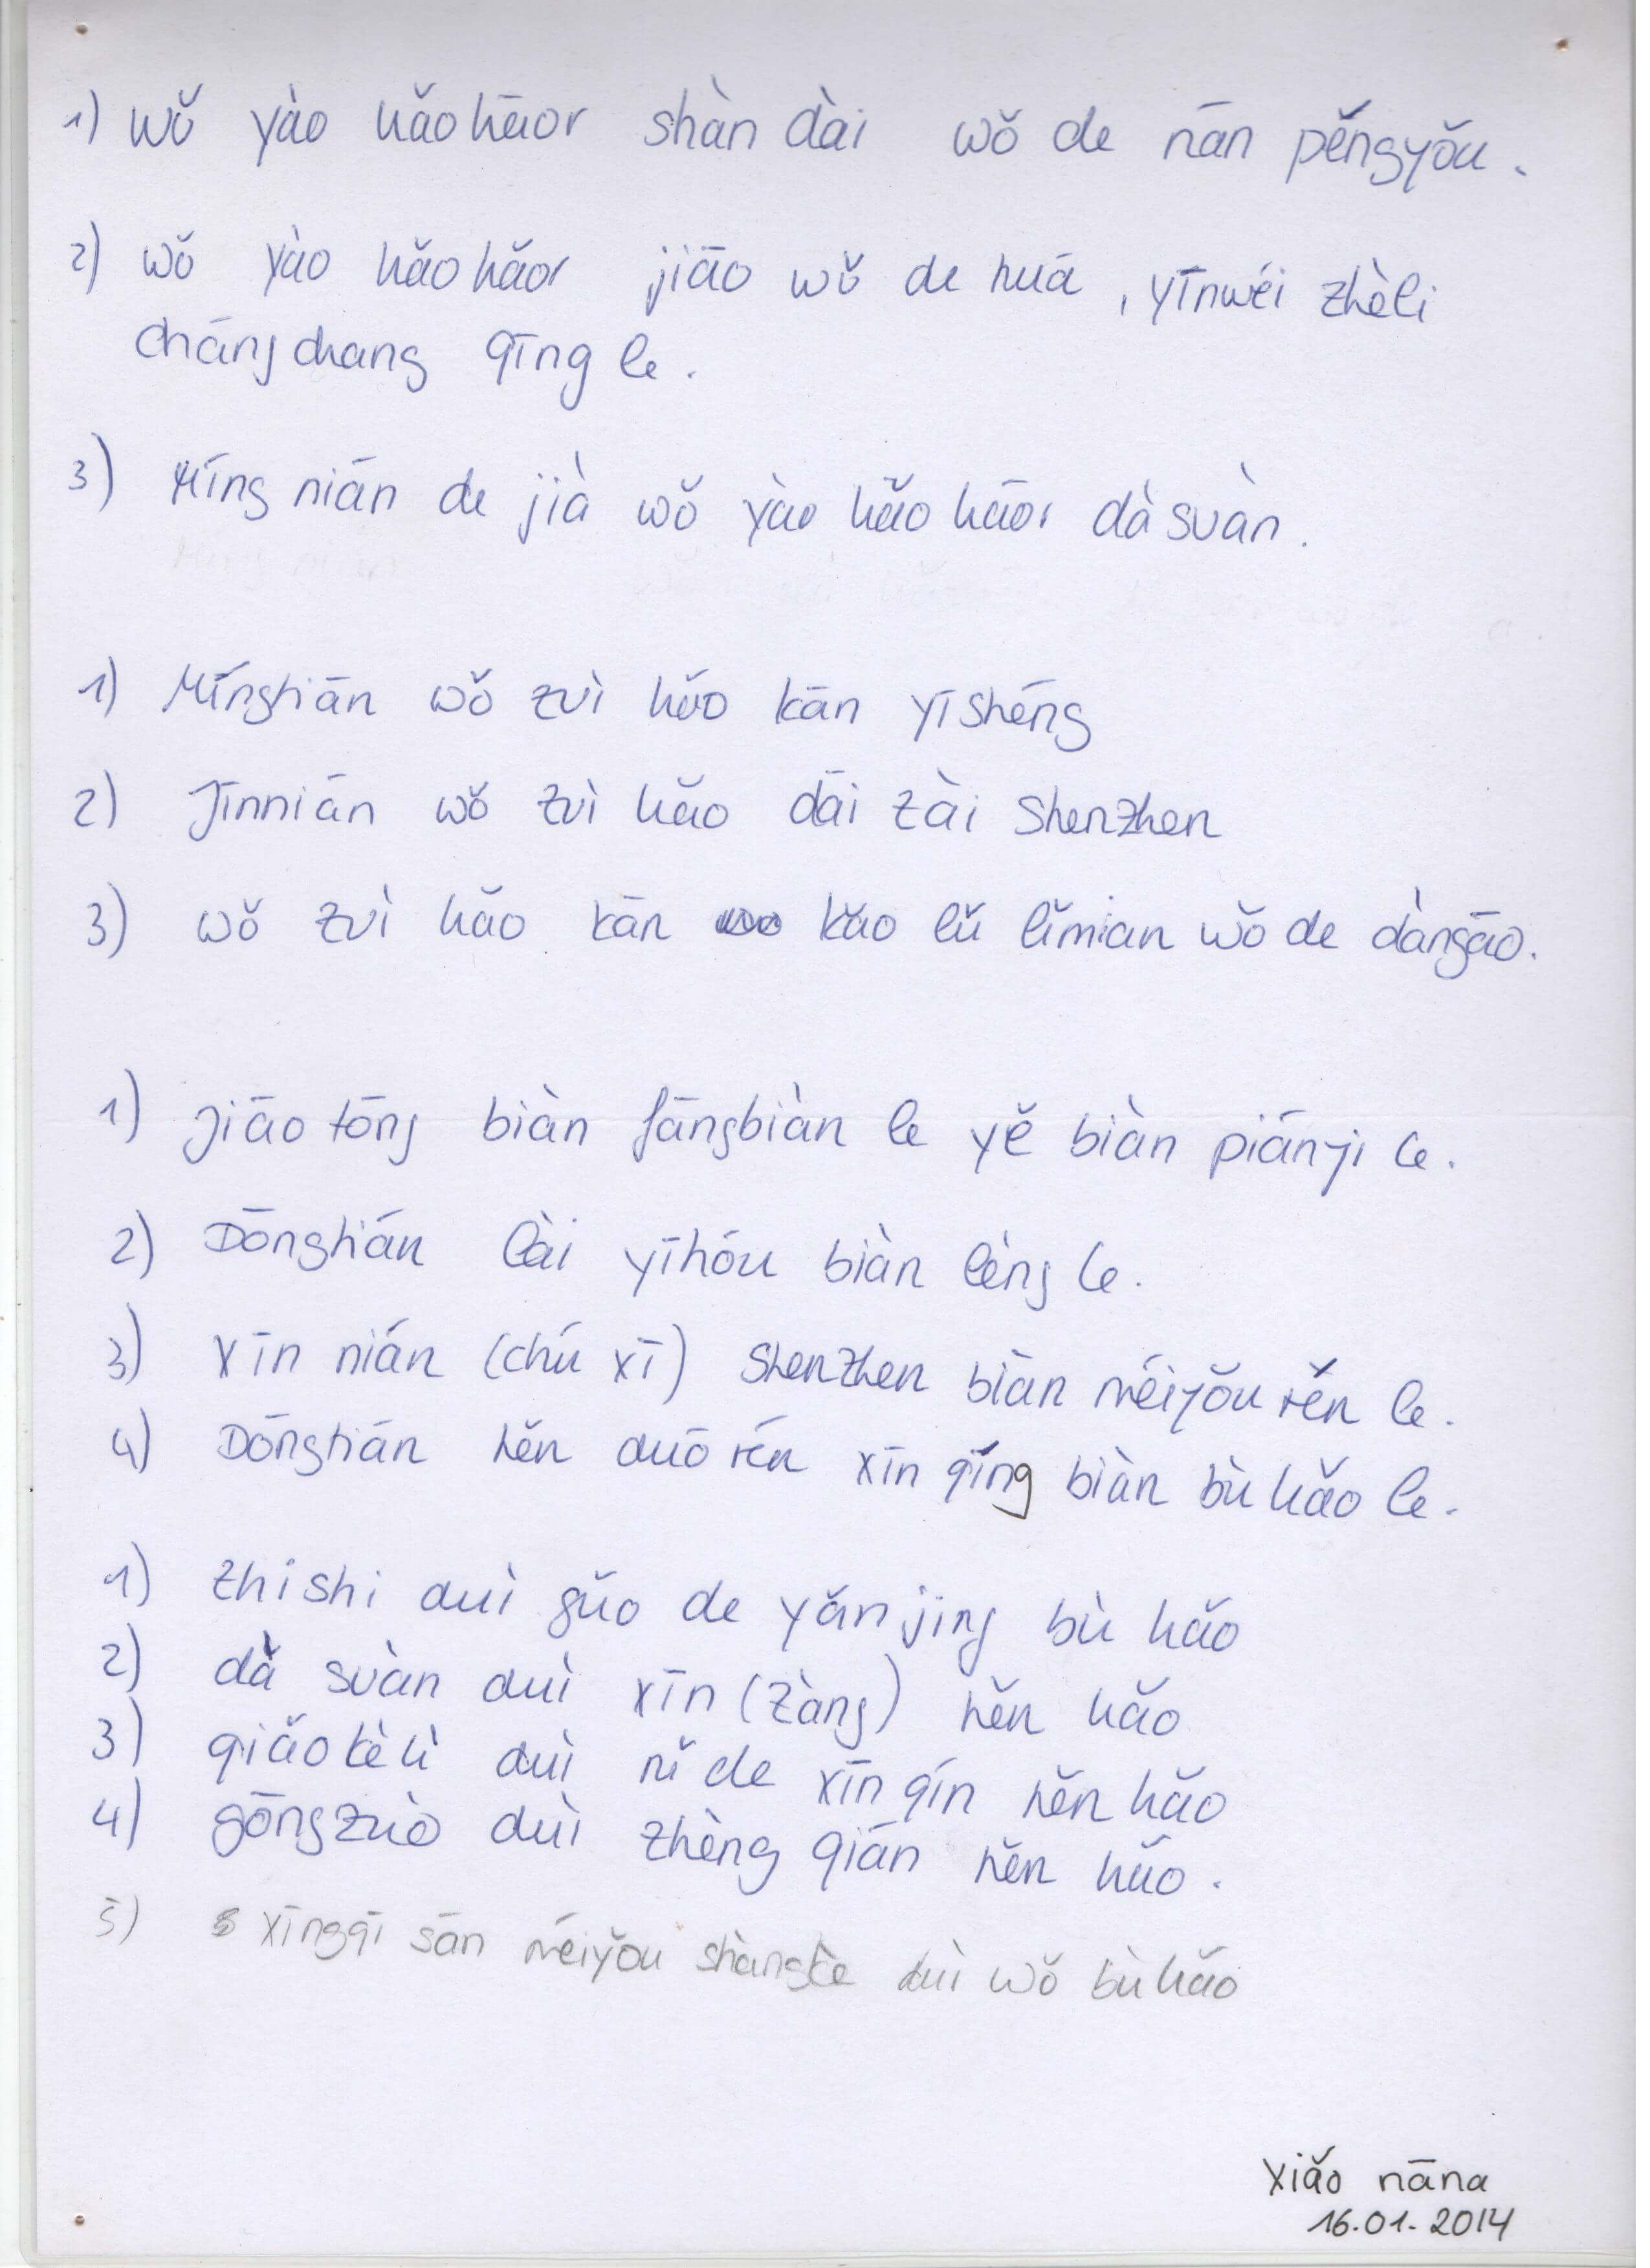 1) wǒ yào hǎohāor shàn dài wǒ de nān pěngyǒu.
2) wǒ yào hǎohǎor jiāo wǒ de huā, yīnwéi zhèli
chángchang qīng le.
3) Míng nián de jià wǒ yào hǎo hāor dà suàn.
1) Míngtiān wǒ zuì hǎo kān yīshéng
2) Jīnnián wǒ zuì hǎo dāi zài Shenzhen
3) wǒ zuì hǎo kān kǎo lǔ lǐmian wǒ de dàngāo.
1) Jiāo tōng biàn fāngbiàn le yě biàn piányi le.
2) Dōngtián lài yīhóu biàn lèng le.
3) Xīn nián (chú xī) Shenzhen biàn méiyǒu rěn le.
4) Dōngtiān hěn duō rén xīn qíng biàn bù hǎo le.
1) zhi shi duì gǔo de yǎnjing bù hǎo
2) dǎ suàn duì xīn (zàng) hěn hǎo
3) qiǎokèlì duì nǐ de xīn qín hěn hǎo
4) gōngzuò duì zhèng qián hěn hǎo.
5) xīngqī sān méiyǒu shàngkè duì wǒ bù hǎo
Xiǎo nāna
16.01.2014